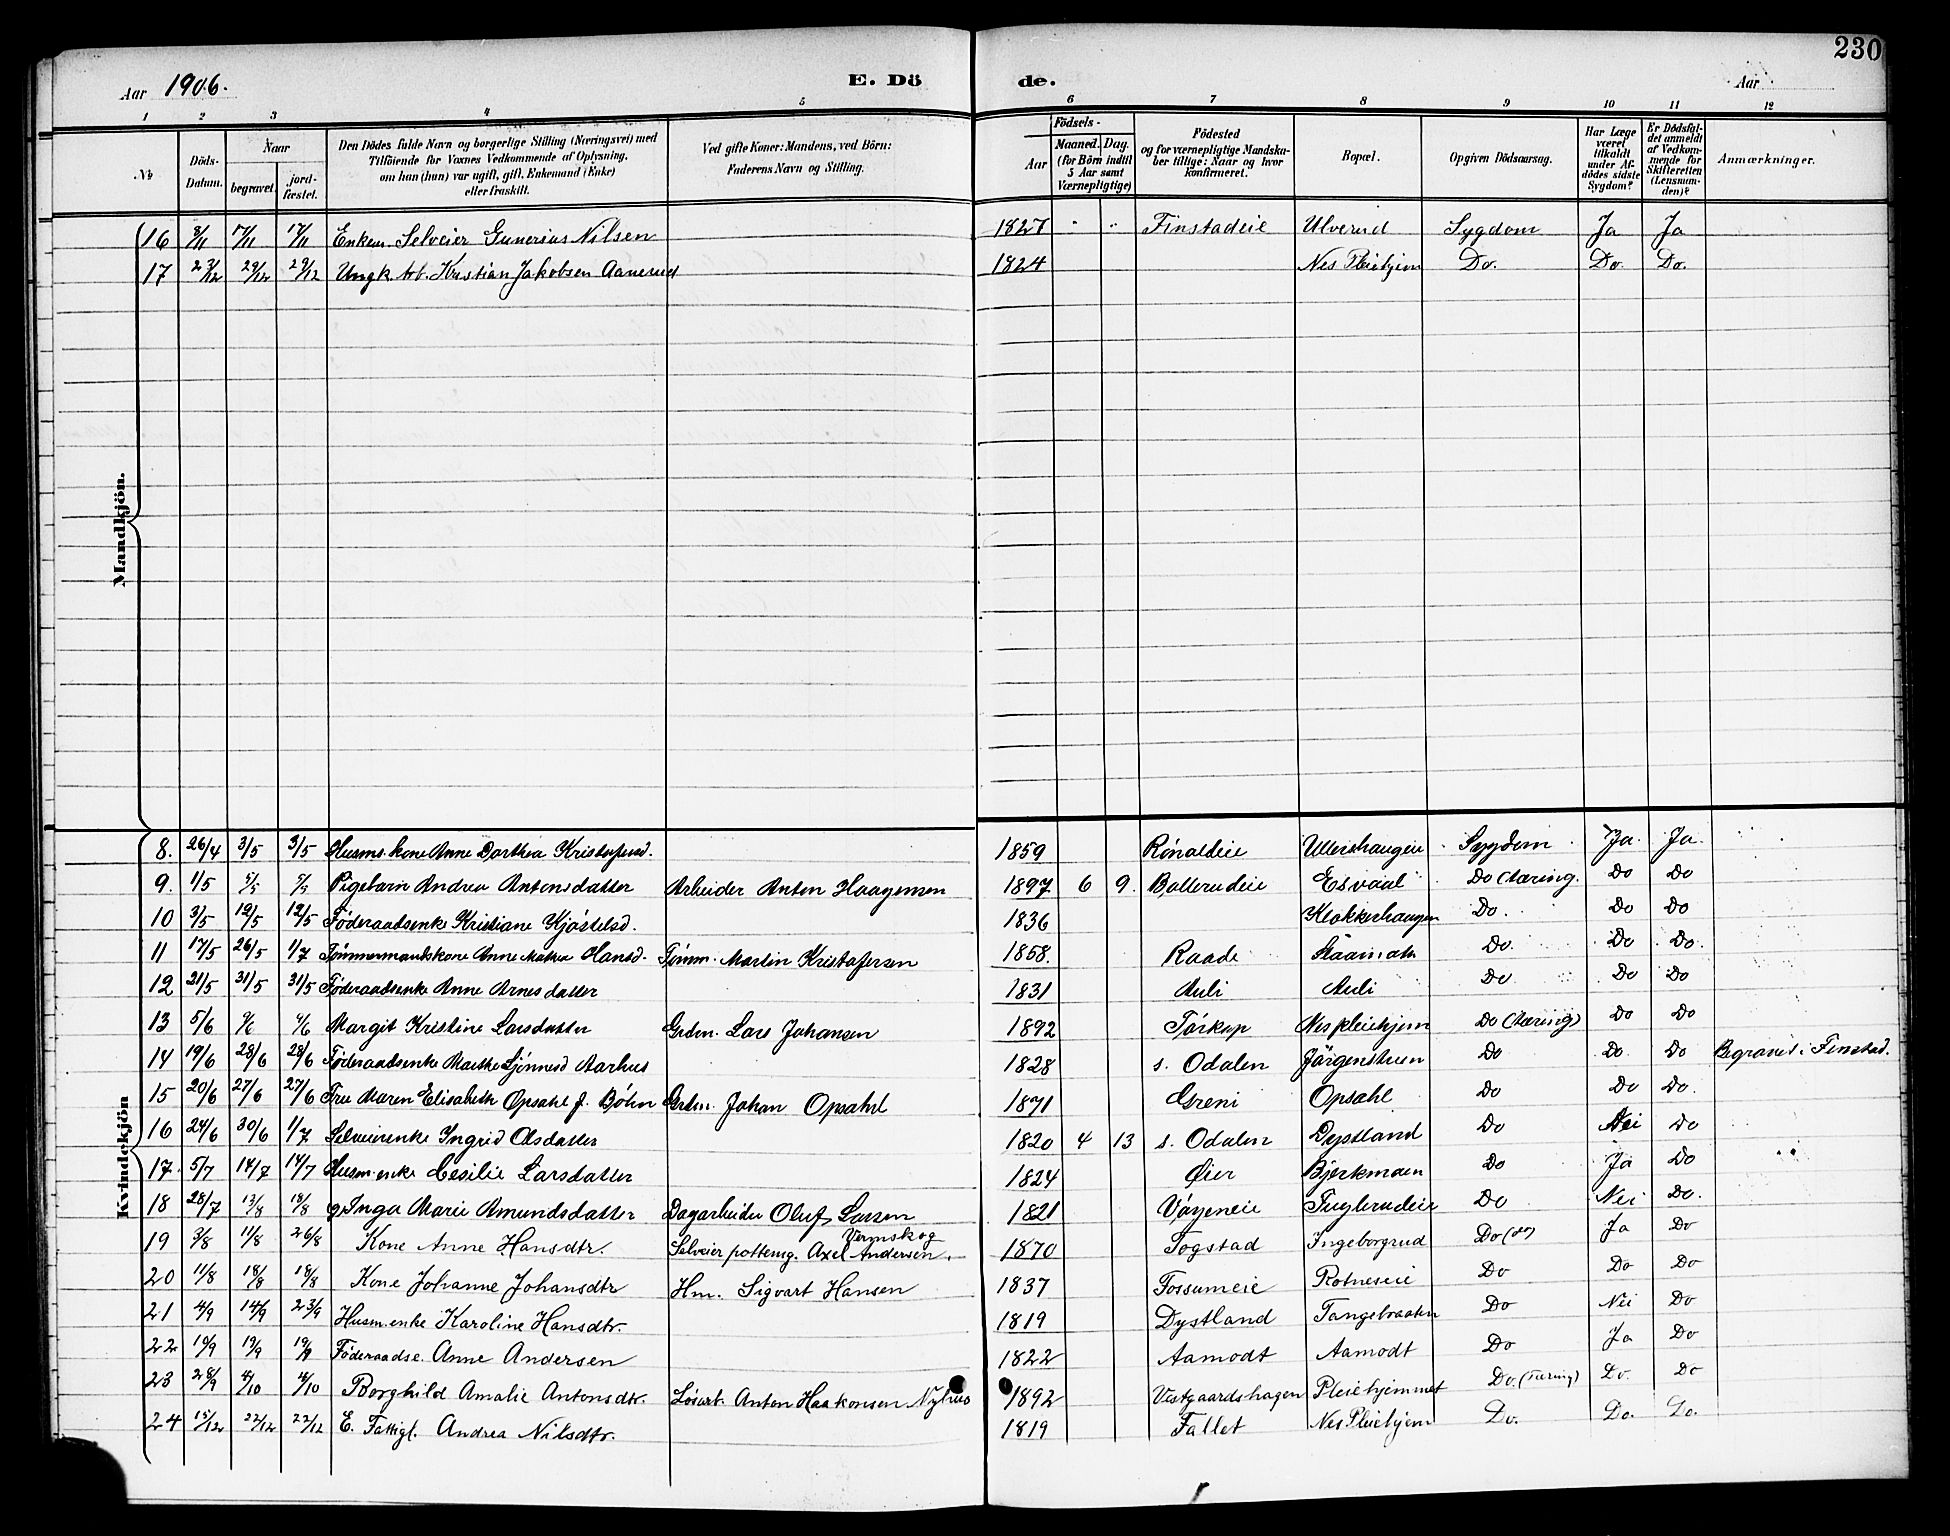 230
Aar 1906. E. Dö de. Aar
1 2 3 4 5 6 7 8 9 10 11 12
No
Döds-Datum.
Naar
begravet. jordfæstet.
Den Dödes fulde Navn og borgerlige Stilling (Næringsvei) med
Tilföiende for Voxnes Vedkommende af Oplysning,
om han (hun) var ugift, gift, Enkemand (Enke)
eller fraskilt.
Ved gifte Koner: Mandens, ved Börn:
Faderens Navn og Stilling.
Födsels-
Aar Maaned. Dag.
(for Börn indtil
5 Aar samt
Værnepligtige)
Födested
og for værnepligtige Mandskaber tillige: Naar og hvor
konfirmeret.
Bopæl.
Opgiven Dödsaarsag.
Har Læge
været
tilkaldt
under Afdödes sidste
Sygdom?
Er Dödsfaldet anmeldt
af Vedkommende for
Skifteretten
(Lensmanden)?
Anmærkninger.
Mandkjön.
16 8/11 17/11 17/11 Enkem. Selveier Gunerius Nilsen 1827 " " Finstadeie Ulverud Sygdom Ja Ja
17 23/12 29/12 29/12 Ungk. Kristian Jakobsen Aanerud 1824 Nes Pleiehjem Do. Do. Do.
Kvindekjön
8. 26/4 3/5 3/5 Husms.kone Anne Dorthea Kristofersd. 1859 Sygdom Ja. Ja.
9. 1/5 5/5 5/5 Pigebarn Andrea Antonsdatter Arbeider Anton Haagensen 1897 6 9. Ballerudeie Esvaal Do (Tæring. Do Do
10 3/5 12/5 12/5 Föderaadsenke Kristiane Kjöstelsd. 1836 Klokkerhaugen Do. Do Do
11 17/5 26/5 1/7 Tömmermandskone Anne Mathea Hansd. Tömm. Martin Kristofersen 1858. Raade Do. Do Do.
12 21/5 31/5 31/5 Föderaadsenke Anne Arnesdatter 1831 Auli Auli Do Do Do
13 5/6 Margit Kristine Larsdatter Grdm. Lars Johansen 1892 Törkop Nes pleiehjem Do (Tæring) Do Do
14 19/6 28/6 28/6 Föderaadsenke Marthe Sjönnesd Aarhus 1828 s. Odalen Jörgenstuen Do Do. Do Begravet i Finstad.
15 20/6 27/6 27/6 Frue Maren Elisabeth Opsahl f. Böhn Grdm. Johan Opsahl 1871 Greni Opsahl Do Do Do.
16 24/6 30/6 1/7 Selveierenke Ingrid Olsdatter 1820 4 13 s. Odalen Dystland Do Nei Do
17. 5/7 14/7 14/7 Husm.enke Cesilie Larsdatter 1824 Øier Bjerkmoen Do Ja Do
18 28/7 18/8 Inga Marie Amundsdatter Dagarbeider Oluf Larsen 1821 Fuglerudeie Do Nei Do.
19 3/8 11/8 26/8 Kone Anne Hansdtr. Selveier pottemg. Axel Andersen Vermskog 1870 Togstad Ingeborgrud Do Ja Do
20 11/8 18/8 18/8 Kone Johanne Johansdtr Hm. Sigvart Hansen 1837 Fossumeie Rotneseie Do Do Do
21 4/9 14/9 23/9 Husm.enke Karoline Hansdtr. 1819 Dystland Tangebraaten Do Nei Do
22 10/9 19/9 19/9 Föderaadse. Anne Andersen 1822 Aamodt Aamodt Do Ja Do
23 28/9 4/10 Borghild Amalie Antonsdtr. Lösarb. Anton Haakonsen 1892 Vestgaardshagen Pleiehjemmet Do. (Tæring) Do. Do
24 15/12 22/12 22/12 E. Fattigl. Andrea Nilsdtr. 1819 Fallet Nes Pleiehjem Do. Do. Do.